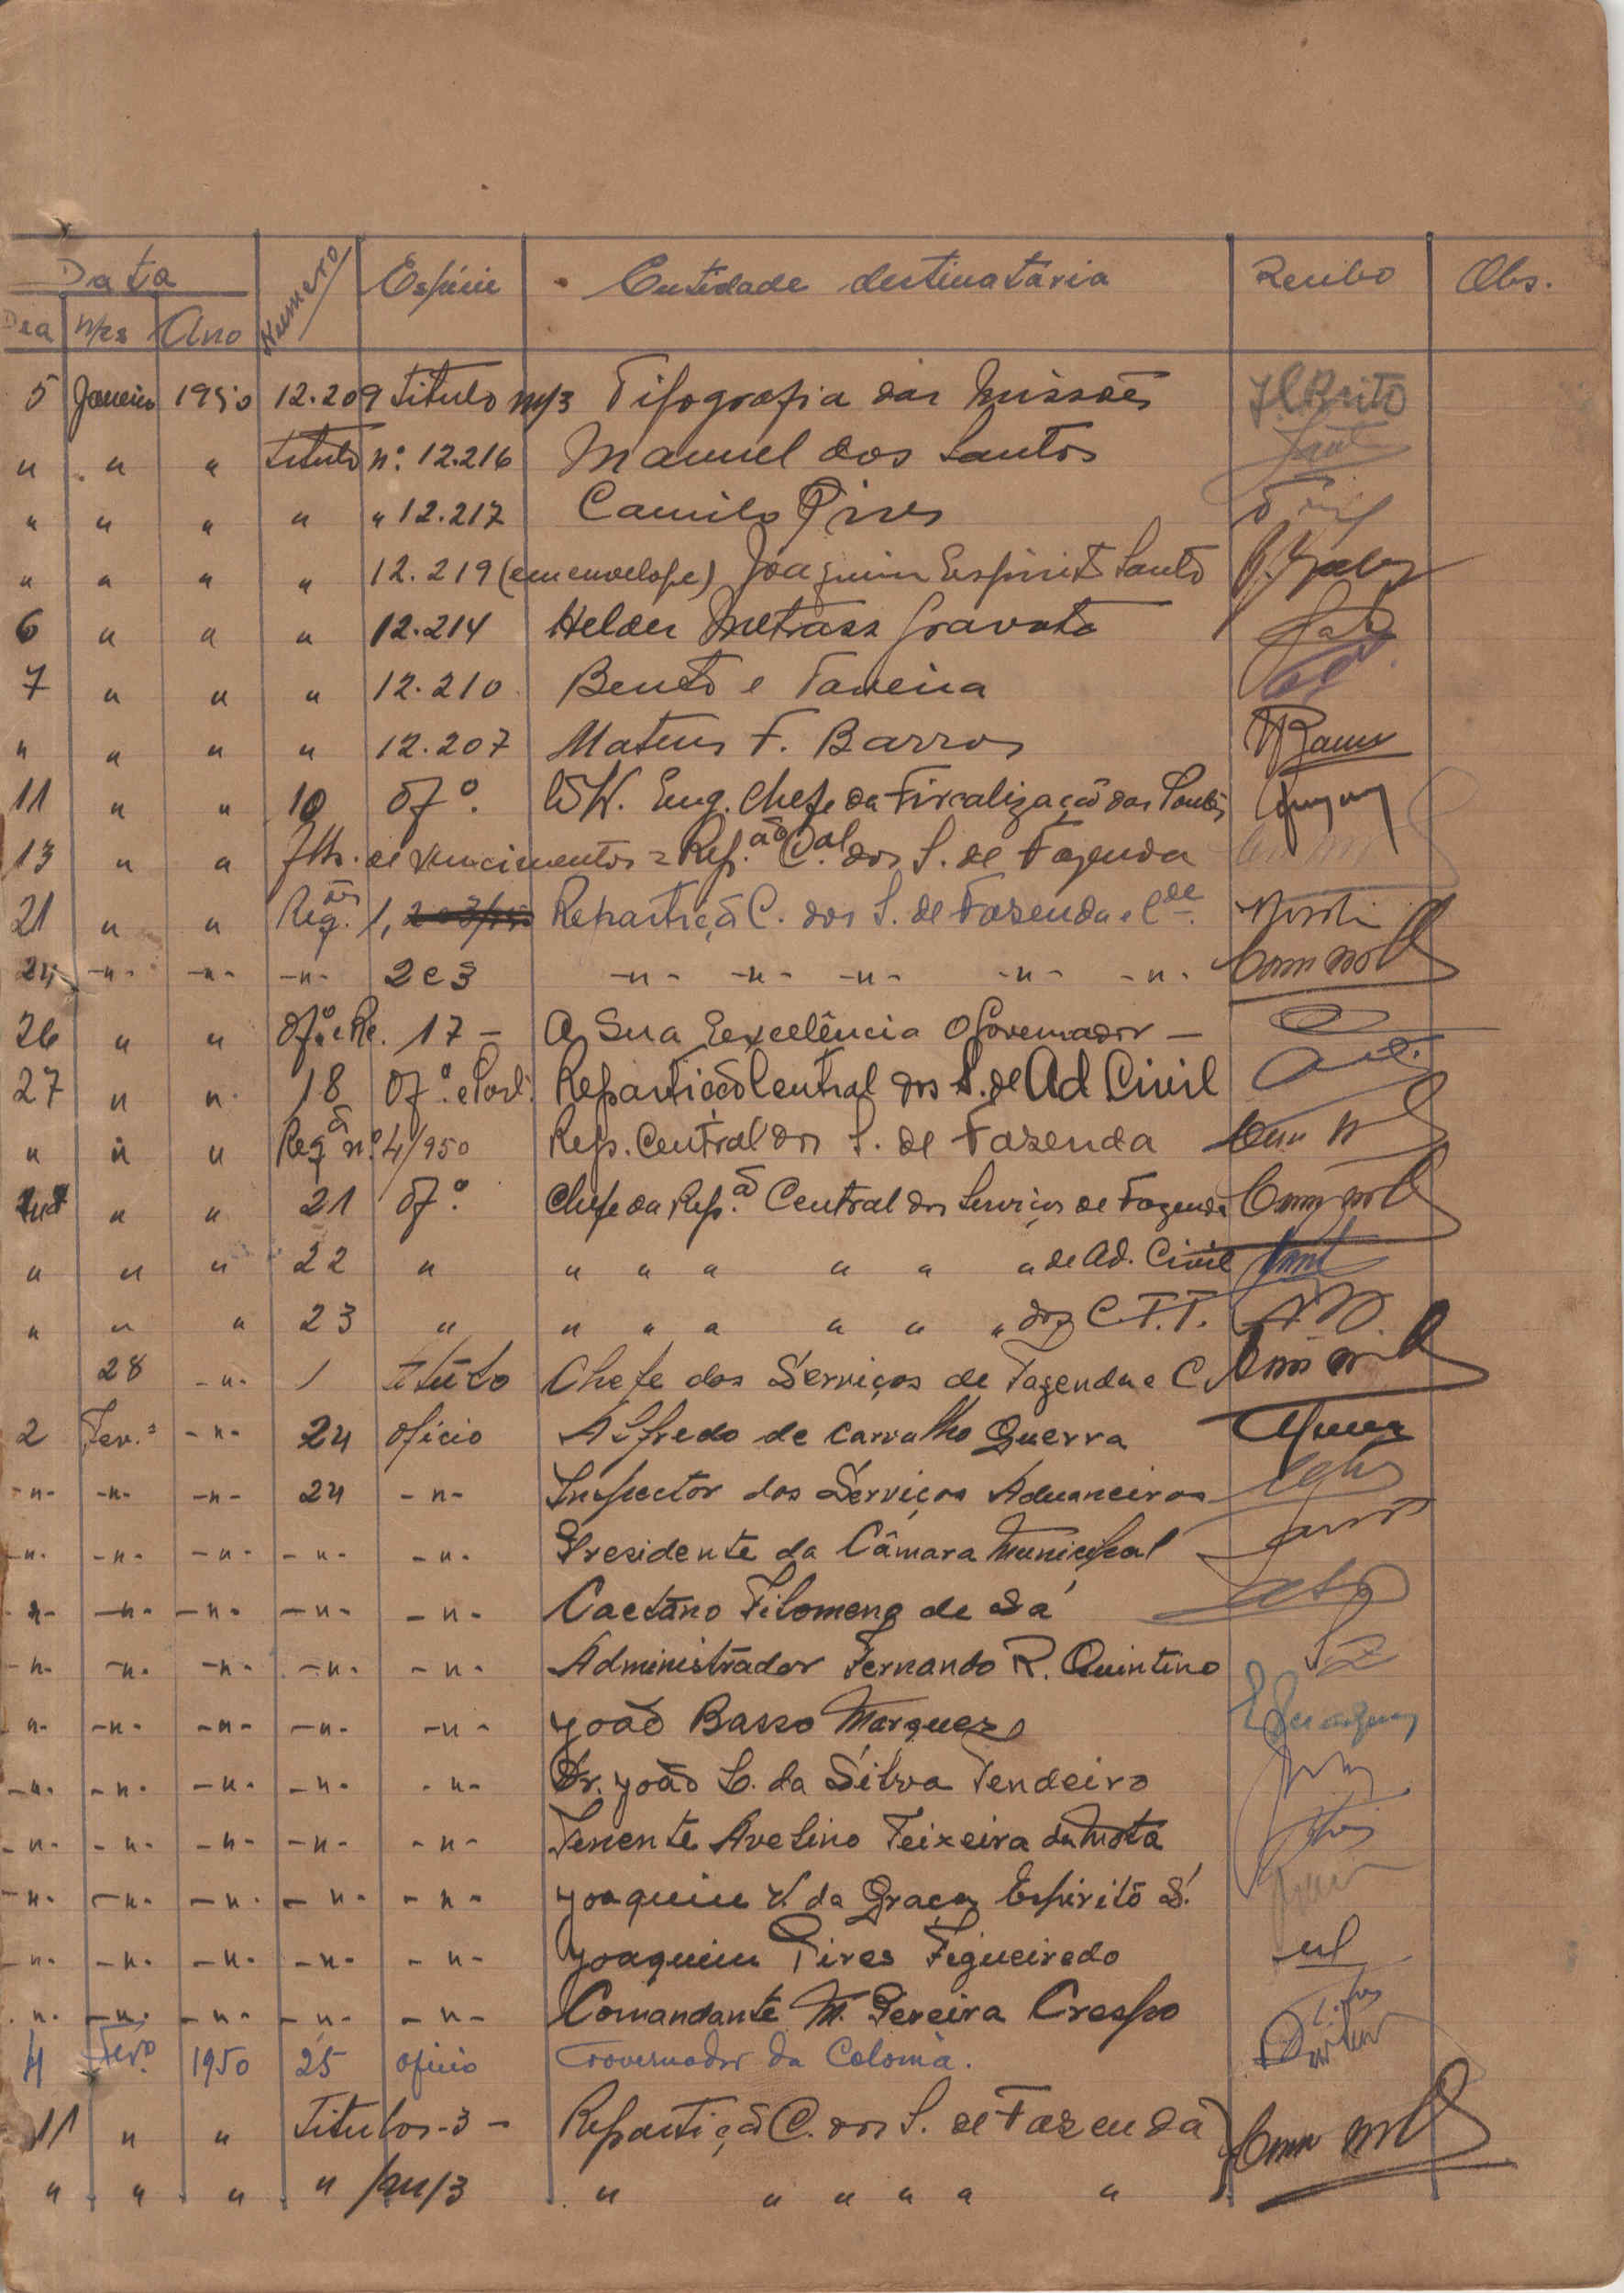 Data Numero Espécie Entidade destinatária Recibo Obs.
Dia Mês Ano
5 Janeiro 1950 12.209 Titulo m/3 Tipografia das Missões
" " " Titulo nº. 12.216 Manuel dos Santos
" " " " " 12.217 Camilo Pires
" " " " 12.219 (em envelope) Joaquim Espirito Santo
6 " " " 12.214 Helder Metrass Gravato
7 " " " 12.210 Bento e Taveira
" " " " 12.207 Mateus F. Barros
11 " " 10 Ofº. Eng. Chefe da Fiscalização das
13 " " Flhs. de vencimentos = Rep.ão C.al dos S. de Fazenda
21 " " Req.ões 1, Repartição C. dos S. de Fazenda e C.de
24 -"- -"- -"- 2 e 3 -"- -"- -"- -"- -"-
26 " " 17 - A Sua Excelência O Governador -
27 " " 18 Ofº. e Port. Repartição Central dos S. de Ad Civil
" " " Reqã nº 4/950 Rep. Central dos S. de Fazenda
" " 21 Ofº. Chefe da Rep.ã Central dos Serviços de Fazenda
" " " 22 " " " " " " " de Ad. Civil
" " " 23 " " " " " " " dos C.T.T.
28 -"- 1 titulo Chefe dos Serviços de Fazenda e C.
2 Fev.º -"- 24 oficio Alfredo de Carvalho Guerra
-"- -"- -"- 24 -"- Inspector dos Serviços Aduaneiros
-"- -"- -"- -"- -"- Presidente da Câmara Municipal
-"- -"- -"- -"- -"- Caetano Filomeno de Sá
-"- -"- -"- -"- -"- Administrador Fernando R. Quintino
-"- -"- -"- -"- -"- João Basso Marques
-"- -"- -"- -"- -"- Dr. João L. da Silva Tendeiro
-"- -"- -"- -"- -"- Tenente Avelino Teixeira da Mota
-"- -"- -"- -"- -"- Joaquim da Graça Espirito S.
-"- -"- -"- -"- -"- Joaquim Pires Figueiredo
-"- -"- -"- -"- -"- Comandante M. Pereira Crespo
4 Fevº 1950 25 oficio Governador da Colonia.
11 " " Titulos-3- Repartição C. dos S. de Fazenda
" " " " m/3 " " " " " "